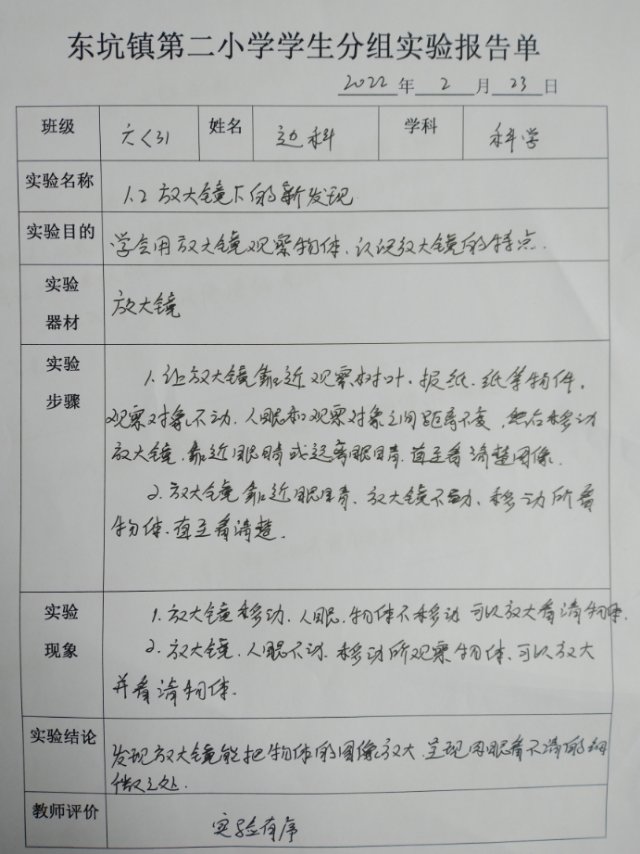 东坑镇第二小学学生分组实验报告单
2022 年 2 月 23 日
班级 六(3) 姓名 边科 学科 科学
实验名称 1.2 放大镜下的新发现
实验目的 学会用放大镜观察物体、认识放大镜的特点.
实验
器材 放大镜
实验
步骤
1. 让放大镜靠近观察树叶、报纸、纸等物件,
观察对象不动、人眼和观察对象之间距离不变,然后移动
放大镜.靠近眼睛或远离眼睛.直至看清楚图像.
2. 放大镜靠近眼睛、放大镜不动、移动所看
物体.直至看清楚.
实验
现象
1. 放大镜移动、人眼、物体不移动 可以放大看清物体.
2. 放大镜、人眼不动.移动所观察物体、可以放大
并看清物体.
实验结论 发现放大镜能把物体的图像放大,呈现用眼看不清的细
微之处.
教师评价 实验有序